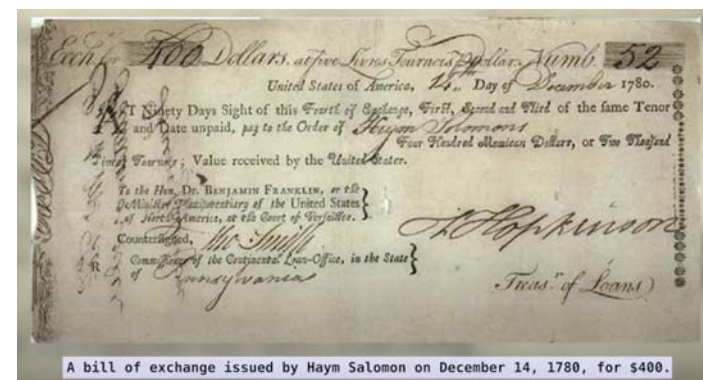 Exch. for 400 Dollars, at five Livres Tournois p Dollar. Numb. 52
United States of America, 14.. Day of December 1780.
AT Ninety Days Sight of this Fourth of Exchange, First, Second and Third of the same Tenor
and Date unpaid, pay to the Order of Haym Solomons
Four Hundred Mexican Dollars, or Two Thousand
Livres Tournois; Value received by the United States.
To the Hon. Dr. BENJAMIN FRANKLIN, or the
Minister Plenipotentiary of the United States
of North America, at the Court of Versailles.
Countersigned, Tho Smith
Commissioner of the Continental Loan-Office, in the State
of Pennsylvania
R
F Hopkinson
Treasr. of Loans
A bill of exchange issued by Haym Salomon on December 14, 1780, for $400.